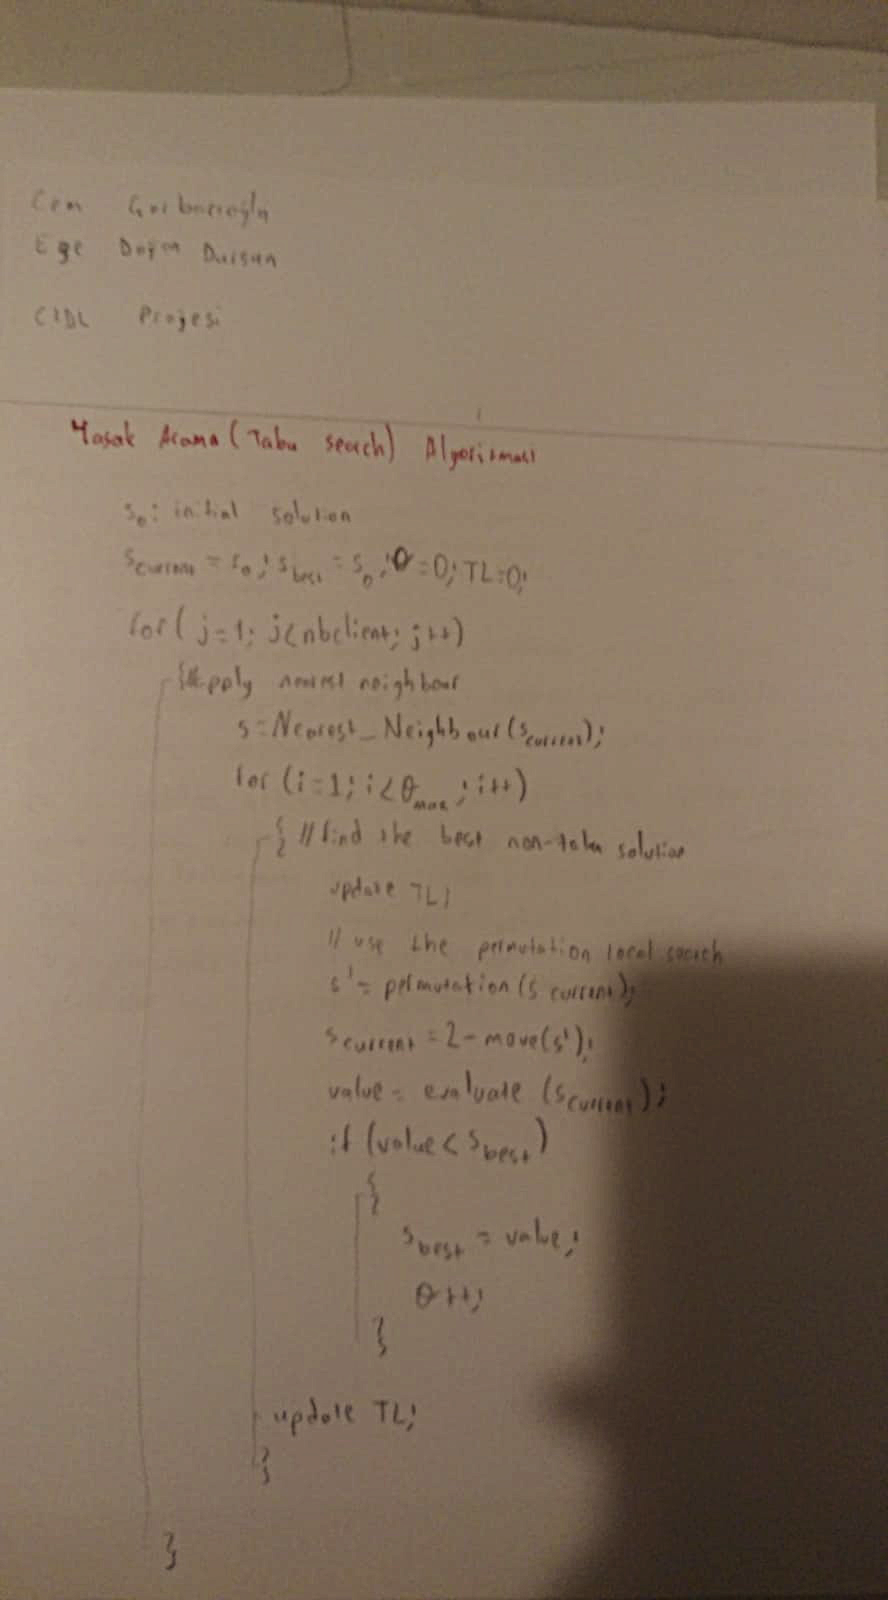 Cem
Ege Doğa Dursun
Projesi
Yasak Arama (Tabu search) Algoritması
s₀: initial solution
s_current = s₀; s_best = s₀; θ=0; TL=0;
for( j=1; j<nbclient; j++)
{//apply nearest neighbour
s=Nearest_Neighbour(s_current);
for (i=1; i<θ_max; i++)
{ //find the best non-tabu solution
update TL;
// use the permutation local search
s'= permutation(s current);
s_current = 2-move(s');
value = evaluate (s_current);
if (value < s_best)
{
s_best = value;
θ++;
}
update TL;
}
}